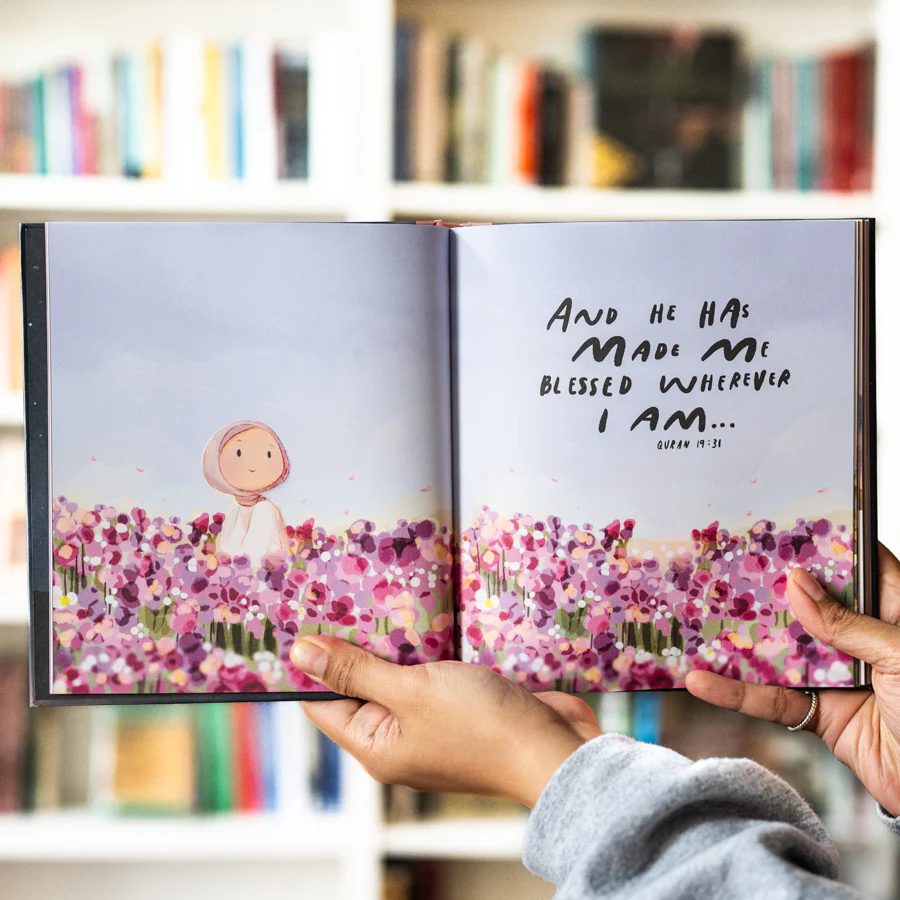 AND HE HAS
MADE ME
BLESSED WHEREVER
I AM...
QURAN 19:31